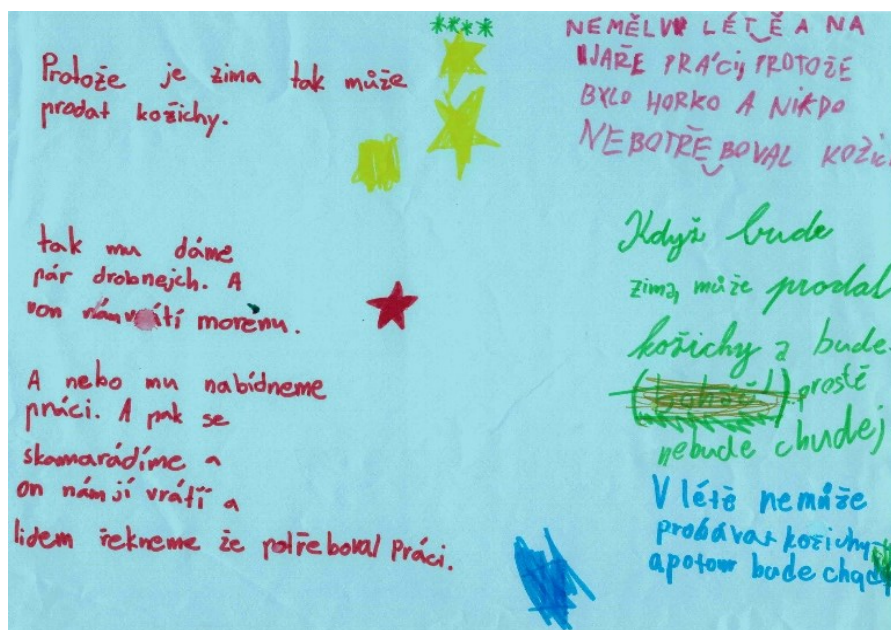 Protože je zima tak může
prodat kožichy.
tak mu dáme
pár drobnejch. A
von nám vrátí morenu.
A nebo mu nabídneme
práci. A pak se
skamarádíme a
on nám jí vrátí a
lidem řekneme že potřeboval Práci.
****
NEMĚL V LÉTĚ A NA
JAŘE PRÁCI, PROTOŽE
BYLO HORKO A NIKDO
NEBOTŘEBOVAL KOŽIC
Když bude
zima, může prodat
kožichy a bude
prostě
nebude chudej
V létě nemůže
probávat kožichy
apotom bude